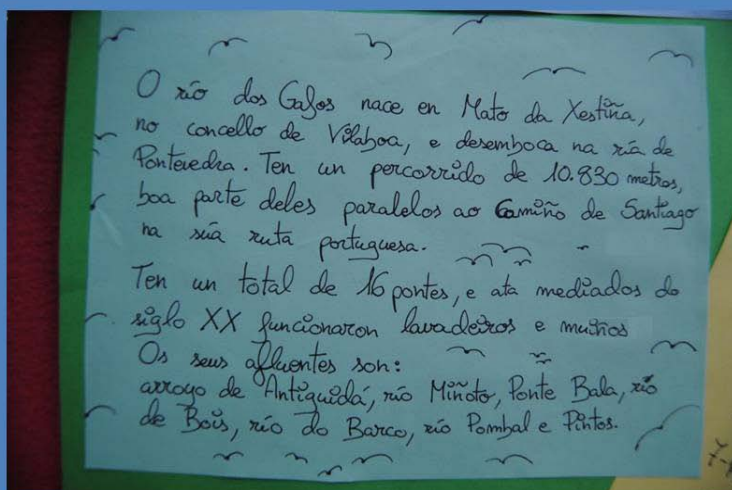 O río dos Gafos nace en Mato da Xestiña,
no concello de Vilaboa, e desemboca na ría de
Pontevedra. Ten un percorrido de 10.830 metros,
boa parte deles paralelos ao Camiño de Santiago
na súa ruta portuguesa.
Ten un total de 16 pontes, e ata mediados do
siglo XX funcionaron lavadeiros e muiños
Os seus afluentes son:
arroyo de Antiguidá, río Miñoto, Ponte Bala, río
de Bois, río do Barco, río Pombal e Pintos.